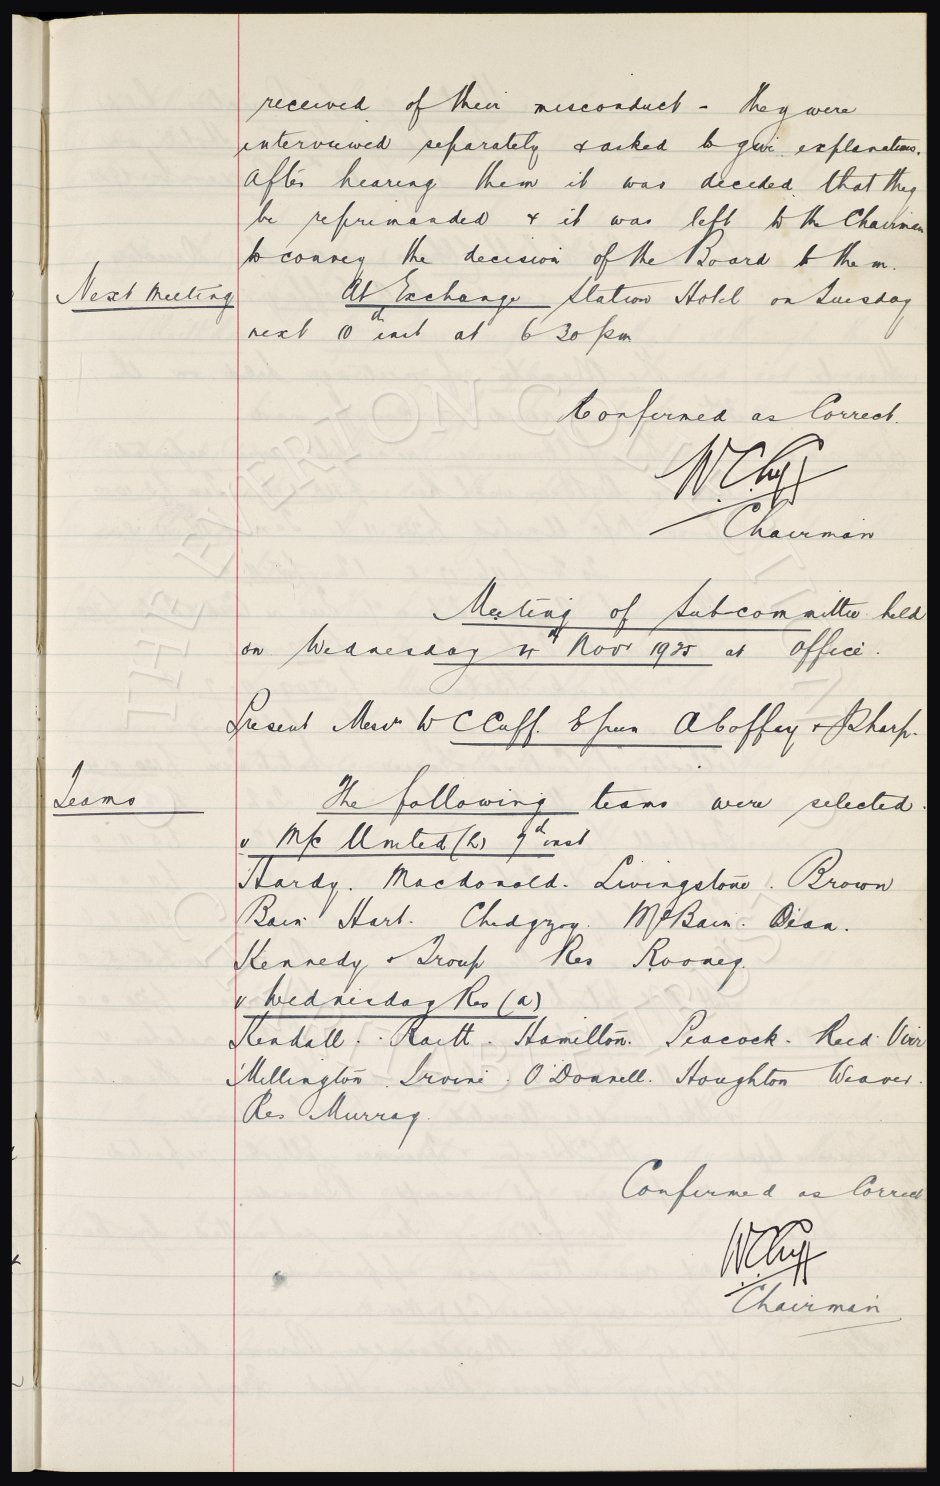 received of their misconduct - they were
interviewed separately & asked to give explanations.
After hearing them it was decided that they
be reprimanded & it was left to the Chairman
to convey the decision of the Board to them.
Next Meeting At Exchange Station Hotel on Tuesday
next 10th inst at 6 30 pm
Confirmed as Correct.
W.C. Cuff
Chairman
Meeting of Sub-committee held
on Wednesday 4th Novr 1925 at Office.
Present Messrs W C Cuff. E Green A Coffey & J Sharp.
Teams The following teams were selected.
v M/c United (h) 7th inst
Hardy. Macdonald. Livingstone. Brown
Bain Hart. Chedgzoy. McBain. Dean.
Kennedy & Troup Res Rooney.
v Wednesday Res (a)
Kendall. Raitt. Hamilton. Peacock. Reid Virr
Millington. Irvine. O'Donnell. Houghton Weaver.
Res Murray.
Confirmed as Correct
W.C. Cuff
Chairman
THE EVERTON COLLECTION